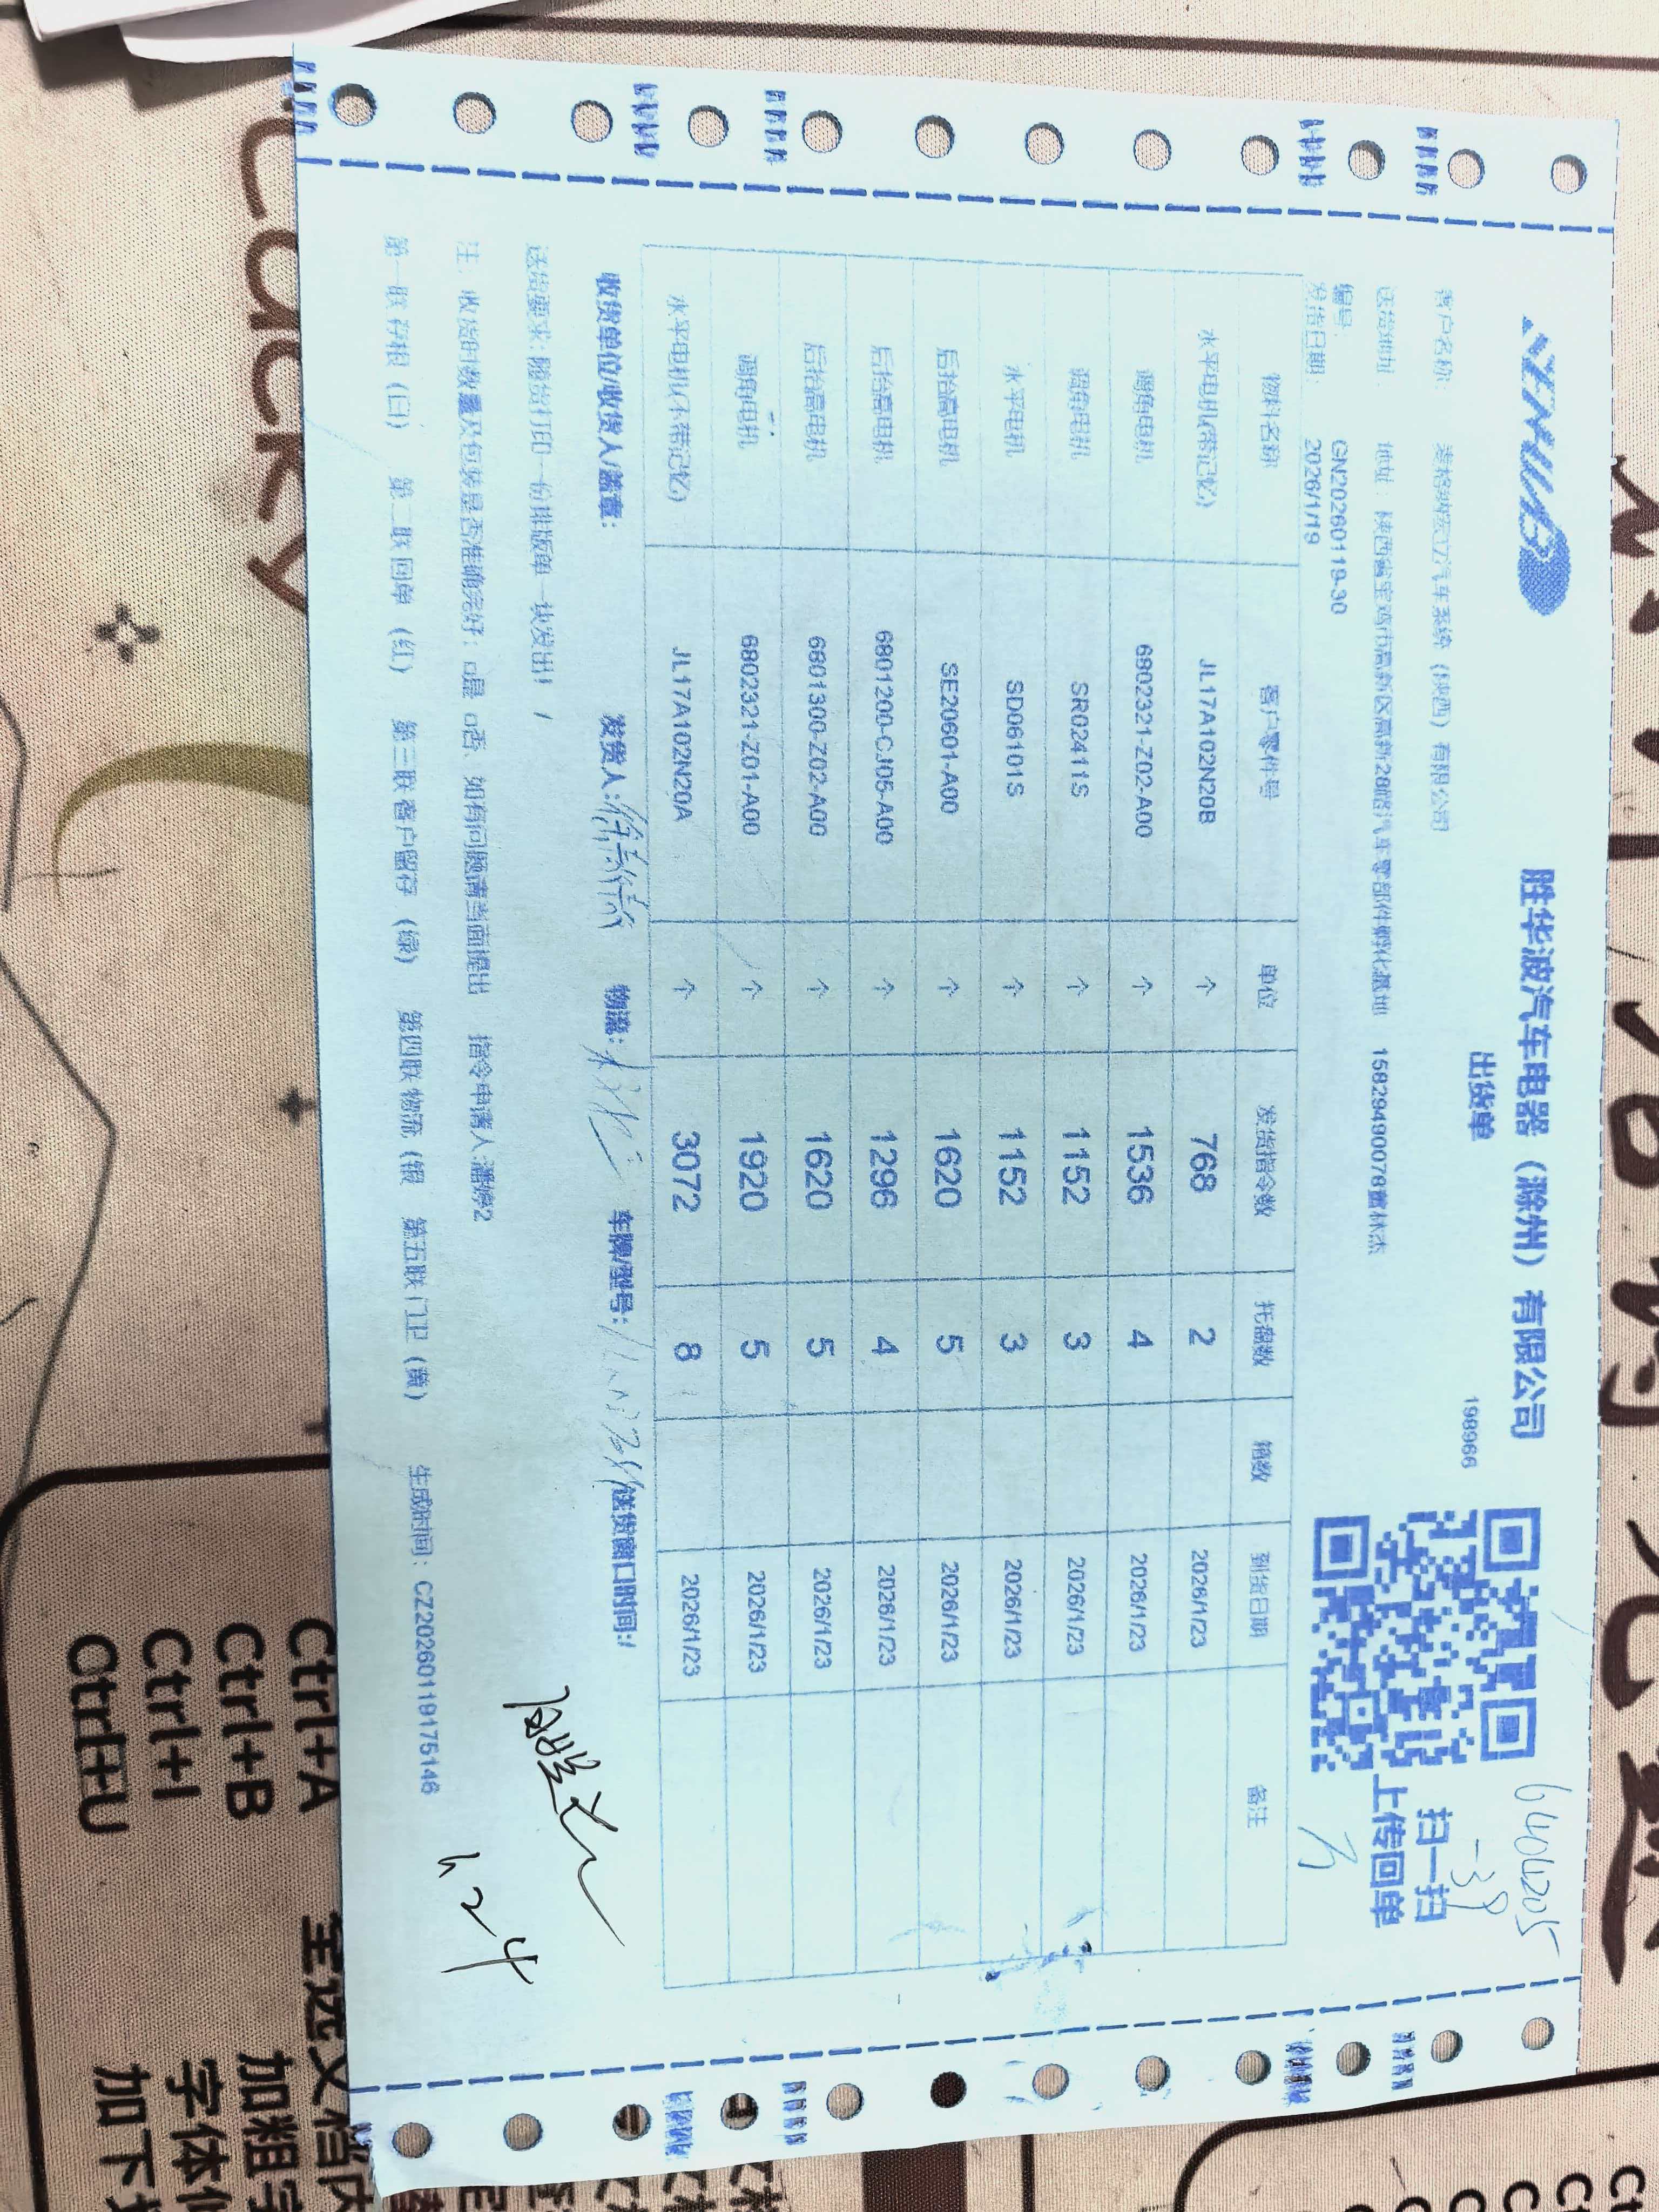 SHENGHUABO
胜华波汽车电器（滁州）有限公司
出货单
198966
扫一扫
上传回单
6404205
-39
客户名称:
汽车系统（陕西）有限公司
送货地址: 地址：陕西省宝鸡市高新区高新28路汽车零部件孵化基地 15829490076曹林杰
编号: GN20260119-30
发货日期: 2026/1/19
物料名称 客户零件号 单位 发货指令数 托盘数 箱数 到货日期 备注
水平电机(带记忆) JL17A102N20B 个 768 2 2026/1/23
调角电机 6802321-Z02-A00 个 1536 4 2026/1/23
调角电机 SR02411S 个 1152 3 2026/1/23
水平电机 SD06101S 个 1152 3 2026/1/23
后抬高电机 SE20601-A00 个 1620 5 2026/1/23
后抬高电机 6801200-CJ05-A00 个 1296 4 2026/1/23
后抬高电机 6801300-Z02-A00 个 1620 5 2026/1/23
调角电机 6802321-Z01-A00 个 1920 5 2026/1/23
水平电机(不带记忆) JL17A102N20A 个 3072 8 2026/1/23
收货单位/收货人/盖章: 发货人: 物流: 车牌/型号: 送货窗口时间:/
送货要求: 随货打印一份排版单一块发出! /
注：收货时数量及包装是否准确完好：□是 □否、如有问题请当面提出 指令申请人:潘婷2
1.24
第一联 存根（白） 第二联 回单（红） 第三联 客户留存（绿） 第四联 物流（银 第五联 门卫（黄） 生成时间：CZ20260119175146
Lucky
Ctrl+A 全选文档内
Ctrl+B 加粗字
Ctrl+I 字体
Ctrl+U 加下